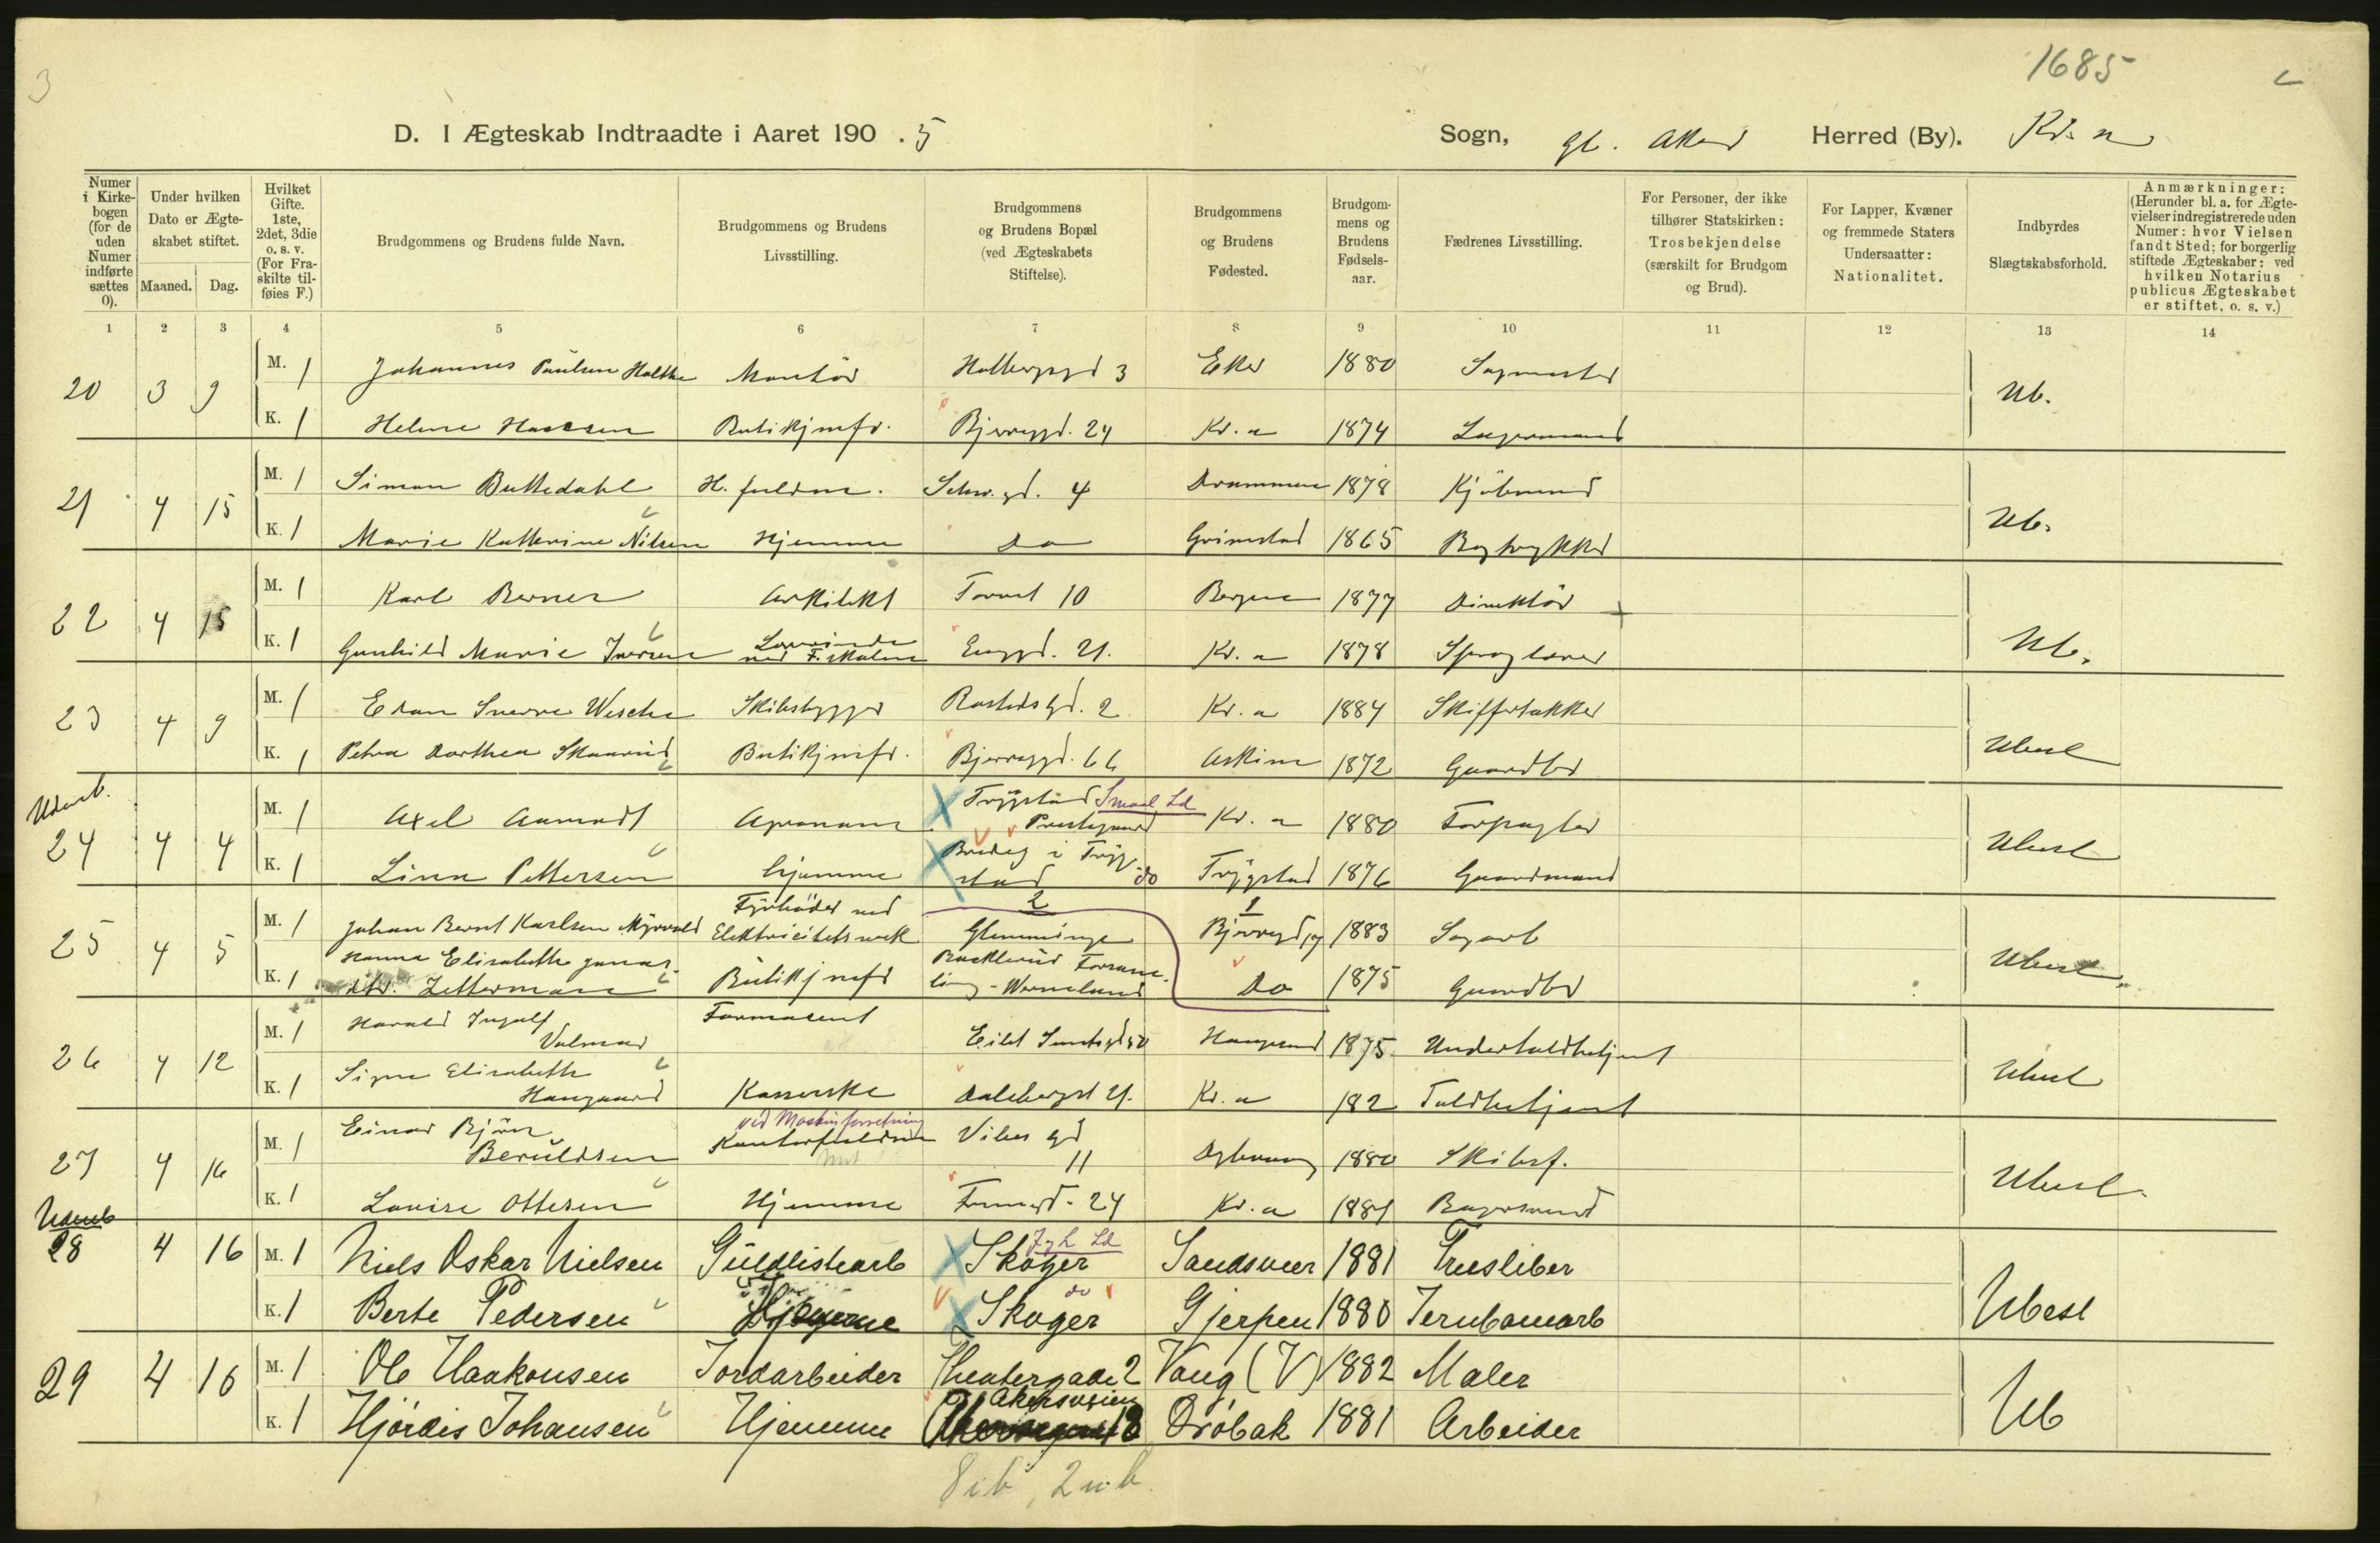 1685
3
D. I Ægteskab Indtraadte i Aaret 190 . 5 Sogn, gl. Aker Herred (By). Kr.a
Numer i Kirkebogen (for de uden Numer indførte sættes 0).
Under hvilken Dato er Ægteskabet stiftet.
Maaned. Dag.
Hvilket Gifte. 1ste, 2det, 3die o. s. v. (For Fraskilte tilføies F.)
Brudgommens og Brudens fulde Navn.
Brudgommens og Brudens Livsstilling.
Brudgommens og Brudens Bopæl (ved Ægteskabets Stiftelse).
Brudgommens og Brudens Fødested.
Brudgommens og Brudens Fødselsaar.
Fædrenes Livsstilling.
For Personer, der ikke tilhører Statskirken: Trosbekjendelse (særskilt for Brudgom og Brud).
For Lapper, Kvæner og fremmede Staters Undersaatter: Nationalitet.
Indbyrdes Slægtskabsforhold.
Anmærkninger: (Herunder bl. a. for Ægtevielser indregistrerede uden Numer: hvor Vielsen fandt Sted; for borgerlig stiftede Ægteskaber: ved hvilken Notarius publicus Ægteskabet er stiftet, o. s. v.)
1 2 3 4 5 6 7 8 9 10 11 12 13 14
20 3 9 M. 1 Johannes Paulsen Holthe Montör Holbergsgd 3 Eker 1880 Sagmester Ub.
K. 1 Helene Hansen Butikjmfr. Bjerregd. 24 Kr.a 1874 Lagermand
21 4 15 M. 1 Simon Buttedahl H. fuldm. Schw. gd. 4 Drammen 1878 Kjöbmand Ub.
K. 1 Marie Kathrine Nilsen Hjemme Do Grimstad 1865 Bogtrykker
22 4 15 M. 1 Karl Berner Arkitekt Torvet 10 Bergen 1877 Direktör Ub.
K. 1 Gunhild Marie Iversen Lærerinde ved F.skolen Enggd. 21. Kr.a 1878 Sproglærer
23 4 9 M. 1 Sverre Wesche Skibsbygger Rostedsgd. 2 Kr.a 1884 Skiffertækker Ubesl
K. 1 Petra Dorthea Skaarud Butikjmfr. Bjerregd. 66 Askim 1872 Gaardbr
Udenb.
24 4 4 M. 1 Axel Aamodt Agronom Tryggstad Smaal Ld Prestegaard Kr.a 1880 Forpagter Ubesl
K. 1 Lina Pettersen hjemme i Trygstad do Trygstad 1876 Gaardmand
25 4 5 M. 1 Johan Bernt Karlsen Myrvold Fyrböder ved Elektricitetsverk 2 Glemminge 1 Bjerregd 17 1883 Sagarb Ubesl
K. 1 Hanna Elisabeth Jonasdtr. Zetterman Butikjmfr Församling - Wermland Do 1875 Gaardbr
26 4 12 M. 1 Harald Ingolf Valmar Farmaceut Eilert Sundtsgd 50 Haugesund 1875 Undertoldbetjent Ubesl
K. 1 Signe Elisabeth Haugaard Kassererske Dalsbergst 21. Kr.a 182 Toldbetjent
27 4 16 M. 1 Einar Björn Beruldsen ved Maskinforretning Kontorfuldm Vibes gd 11 1880 Skibsf. Ubesl.
K. 1 Lovise Ottersen Hjemme 24 Kr.a 1881 Bagersvend
Udenb
28 4 16 M. 1 Niels Oskar Nielsen Guldlistearb Skoger Jgh Ld Sandsvær 1881 Træsliber Ubesl
K. 1 Berte Pedersen Hjemme Skoger do Gjerpen 1880 Jernbanearb
29 4 16 M. 1 Ole Haakonsen Jordarbeider Theatergade 2 Vang (V) 1882 Maler Ub
K. 1 Hjördis Johansen Hjemme Akersveien 18 Dröbak 1881 Arbeider
8 ib, 2 ub.